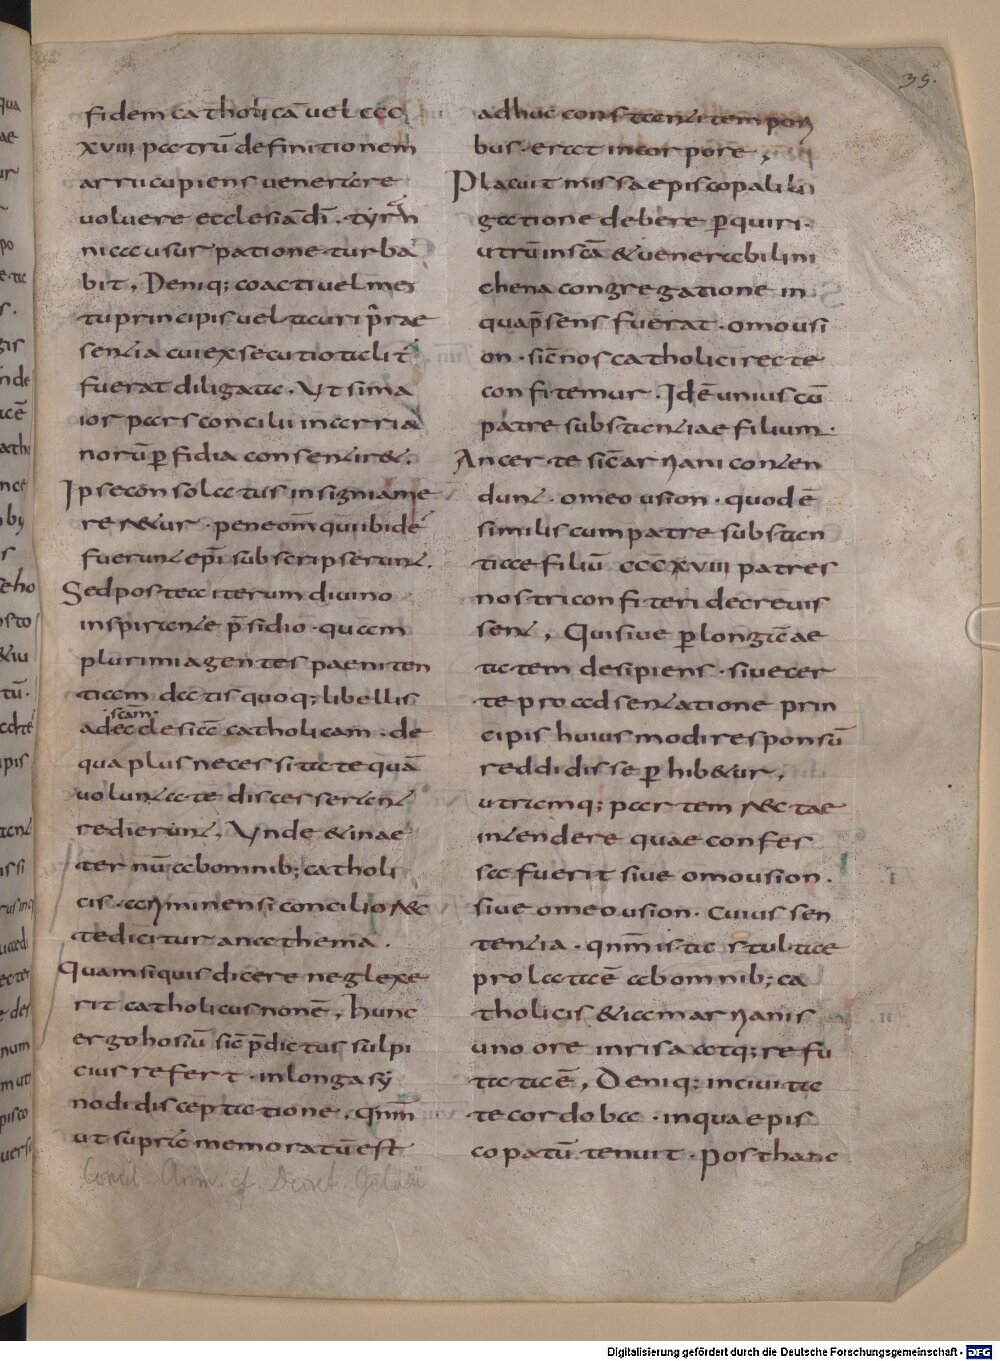 35.
fidem catholicā uel ccc
xviii patrū definitionem
arrii cupiens uenerare
uoluere ecclesiā dī. tyrān
nica usurpatione turba
bit, Deniq; coacti uel me
tu principis uel tauri p̄rae
sentia cui exsecutio tali t̄
fuerat diligata. Vt si ma
ior pars concilii in arria
norū p̄fidia consentir&.
Ipse consolatus insigniame
rer&ur. pene om̄ qui ibidē
fuerunt ep̄i subscripserunt.
Sed postea iterum diuino
inspirante p̄sidio. quam
plurimi agentes paeniten
tiam datis quoq; libellis
ad .scam. ecclesiā catholicam. de
qua plus necessitate quā
uoluntate discesserant
redierunt, Vnde & in ae
ternū ab omnib; catholi
cis. ariminensi concilio n̄c
te dicitur anathema.
Quam siquis dicere neglexe
rit catholicus non ē, hunc
ergo hosiū sic̄ p̄dictus sulpi
cius refert. in longa sy
nodi disceptatione. qnm̄
ut supra memoratū est
Concil. Arim. cf. Decret. Gelasii
adhuc constanti tempori
bus. erat incorpore,
Placuit missa episcopali li
gatione debere p̄quiri.
utrū in scā & uenerabili ni
chena congregatione in
qua p̄sens fuerat. omousi
on. sic̄ nos catholici recte
confitemur. Idē unius cū
patre substantiae filium.
An certe sic̄ arriani conten
dunt. omeousion. quod ē
similis cum patre substan
tiae filiū cccxviii patres
nostri confiteri decreuis
sent, Qui siue p̄ longā ae
tatem desipiens. siue cer
te pro adsentatione prin
cipis huiusmodi responsū
reddidisse p̄hib&ur,
utramq; partem recte
intendere quae confes
sa fuerit siue omousion.
siue omeousion. cuius sen
tentia. qnm̄ ista stultae
prolata ē ab omnib; ca
tholicis & ac̄ma rrianis
uno ore inrisa atq; refu
tata ē, Deniq; in ciuita
te cordoba. in qua epis
copatū tenuit. post hanc
Digitalisierung gefördert durch die Deutsche Forschungsgemeinschaft - DFG